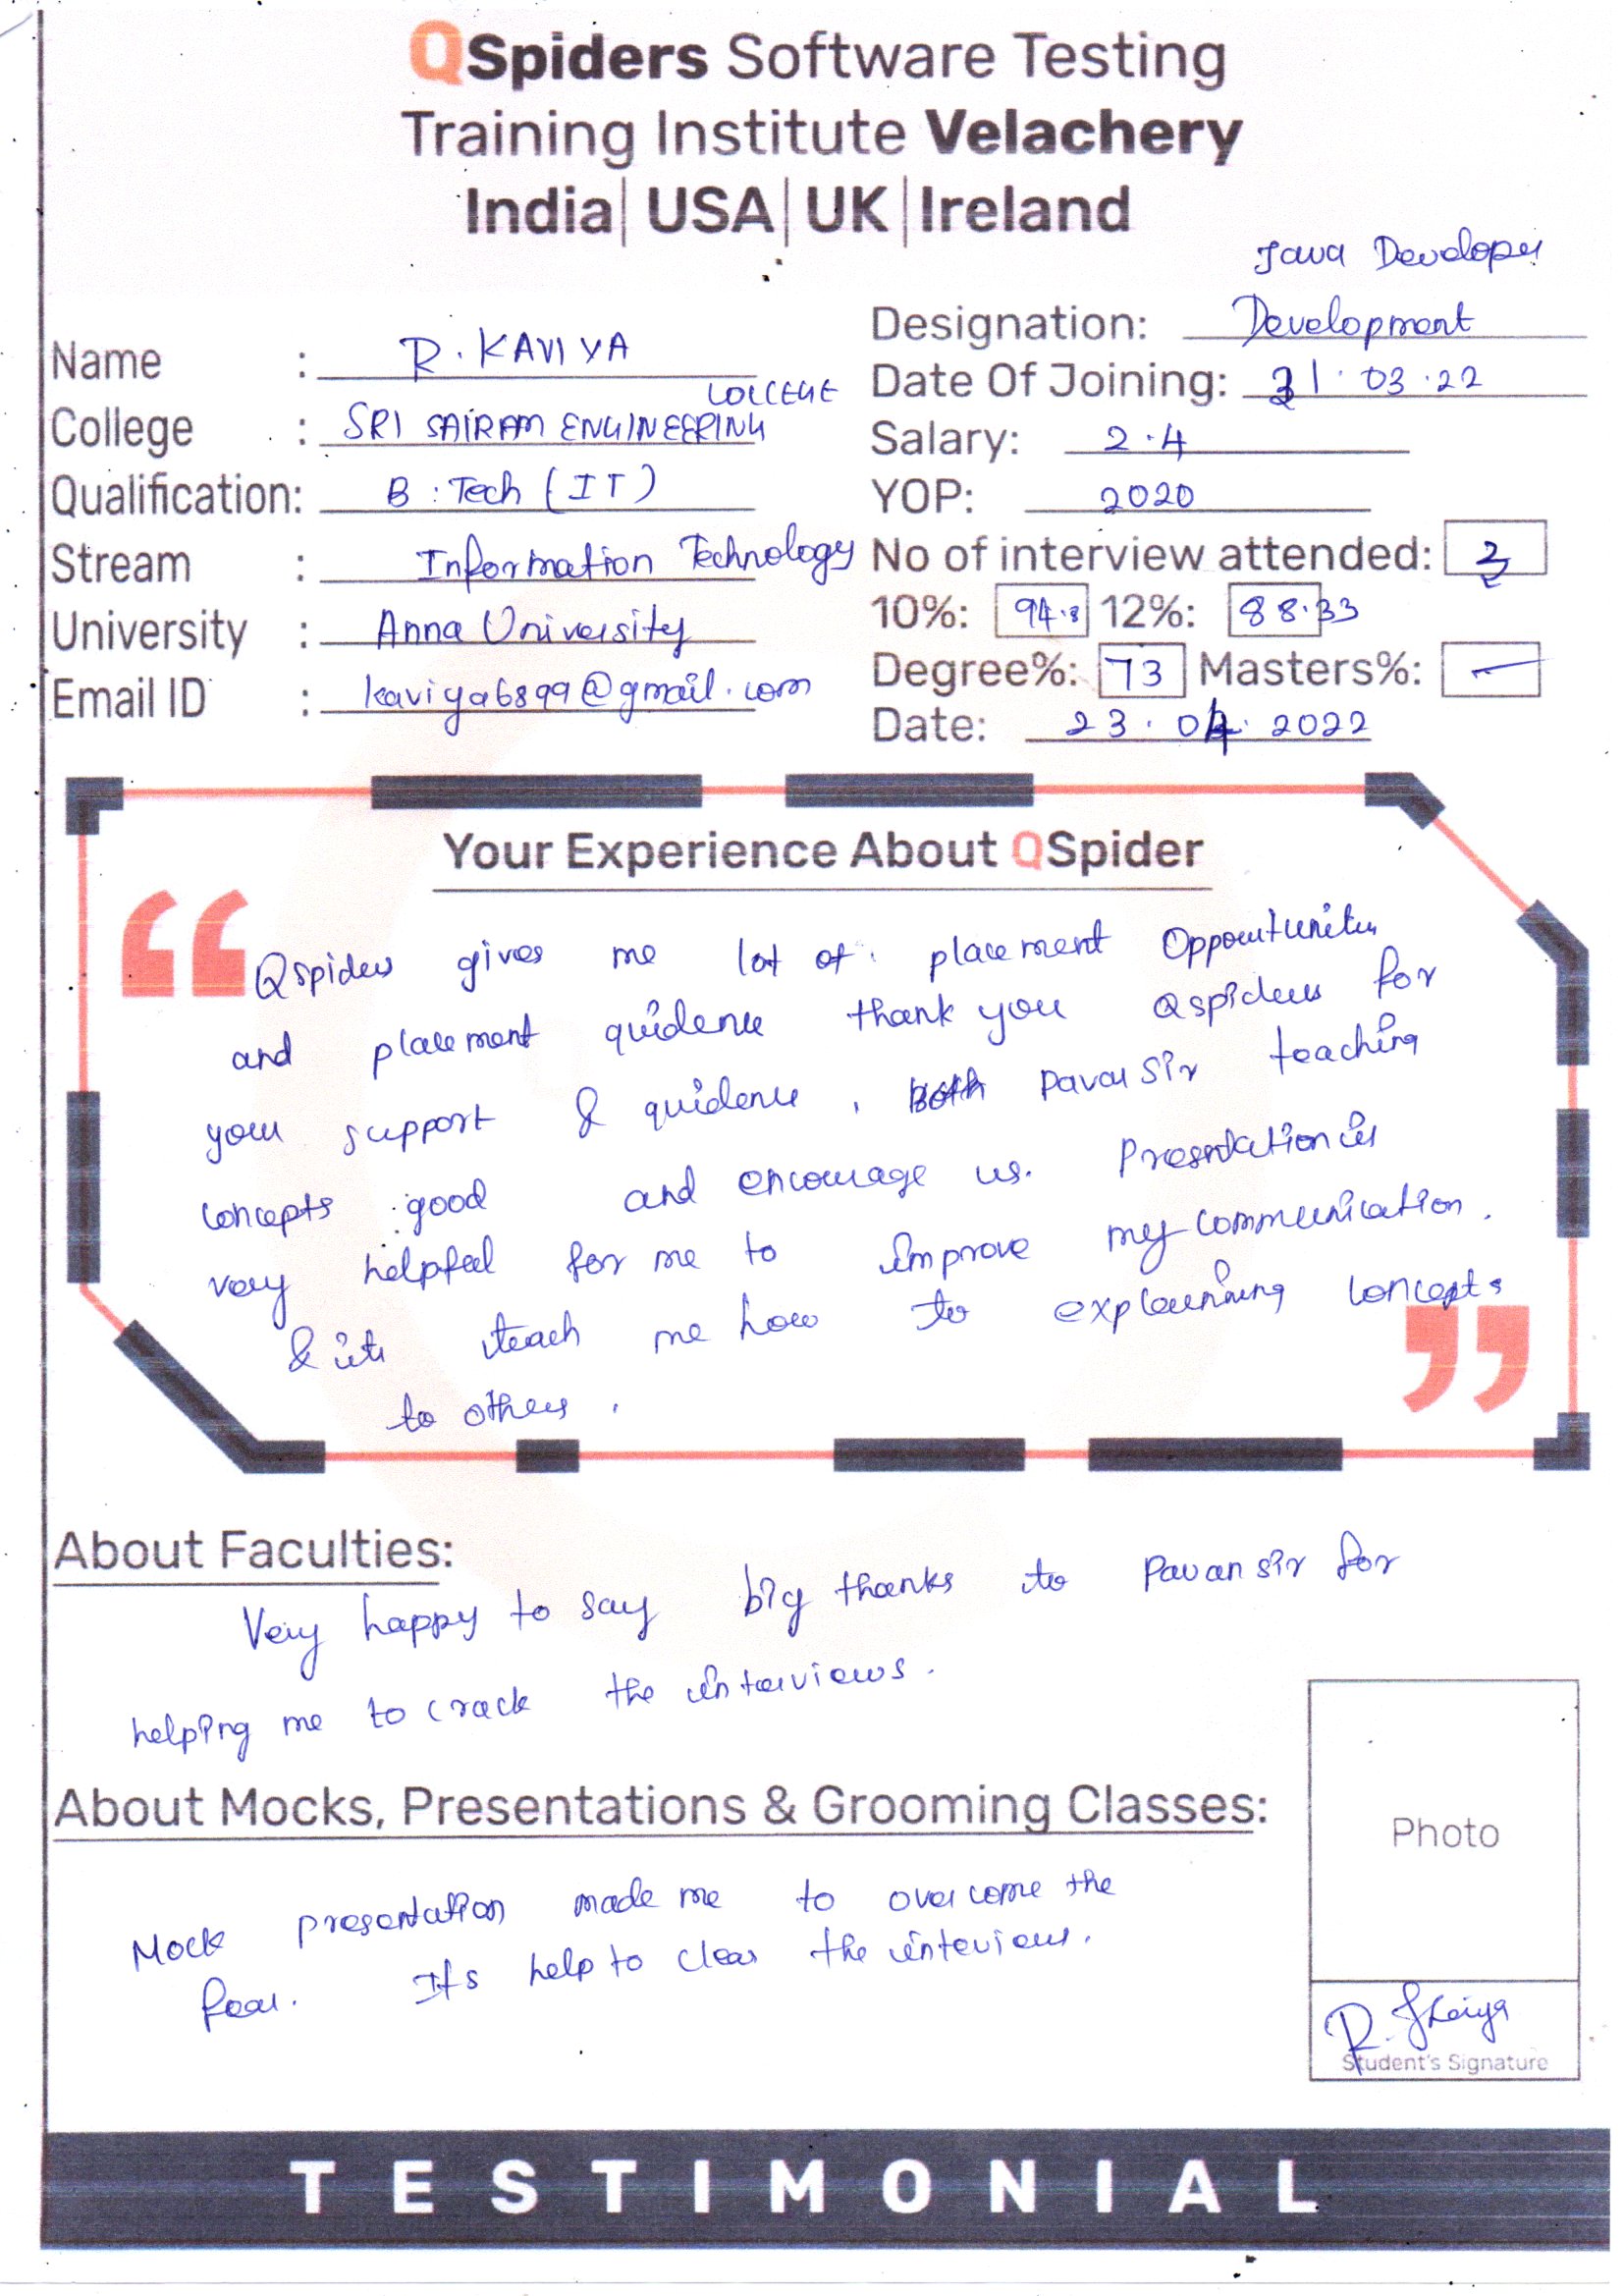 QSpiders Software Testing
Training Institute Velachery
India| USA| UK |Ireland
Java Developer
Designation: Development
Name : R. KAVIYA
Date Of Joining: 31.03.22
COLLEGE
College : SRI SAIRAM ENGINEERING
Salary: 2.4
Qualification: B.Tech (IT)
YOP: 2020
Stream : Information Technology
No of interview attended:
University : Anna University
10%: 94.8 12%: 88.33
Degree%: 73 Masters%: -
Email ID : kaviya6899@gmail.com
Date: 23.04.2022
Your Experience About QSpider
“ Qspiders gives me lot of placement Opportunities
and placement guidence thank you Qspiders for
your support & guidence, Pavan Sir teaching
concepts good and encourage us. Presentation is
very helpful for me to improve my communication.
& its teach me how to explaining concepts ”
to others.
About Faculties:
Very happy to say big thanks to Pavan sir for
helping me to crack the interviews.
About Mocks, Presentations & Grooming Classes:
Mock presentation made me to overcome the
fear. Its help to clear the interviews.
Photo
Student's Signature
TESTIMONIAL